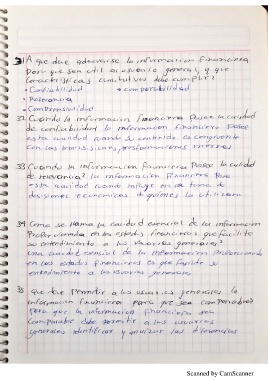 31 A que debe adecuarse la informacion financiera
para que sea util al usuario general, y que
caracteristicas cualitativas debe cumplir?
• Confiabilidad • comparabilidad
• Relevancia
• Comprensibilidad
32 Cuando la informacion financiera posee la cualidad
de confiabilidad la informacion financiera posee
esta cualidad cuando su contenido es congruente
con las transacciones, transformaciones internas
33 Cuando la informacion financiera posee la cualidad
de relevancia? la informacion financiera posee
esta cualidad cuando influye en la toma de
decisiones economicas de quienes la utilizan
34 Como se llama la cualidad esencial de la informacion
proporcionada en los estados financieros que facilite
su entendimiento a los usuarios generales?
Una cualidad esencial de la informacion proporcionada
en los estados financieros es que facilite su
entendimiento a los usuarios generales
35 que debe permitir a los usuarios generales la
informacion financiera para que sea comparable?
para que la informacion financiera sea
comparable debe permitir a los usuarios
generales identificar y analizar las diferencias
Scanned by CamScanner